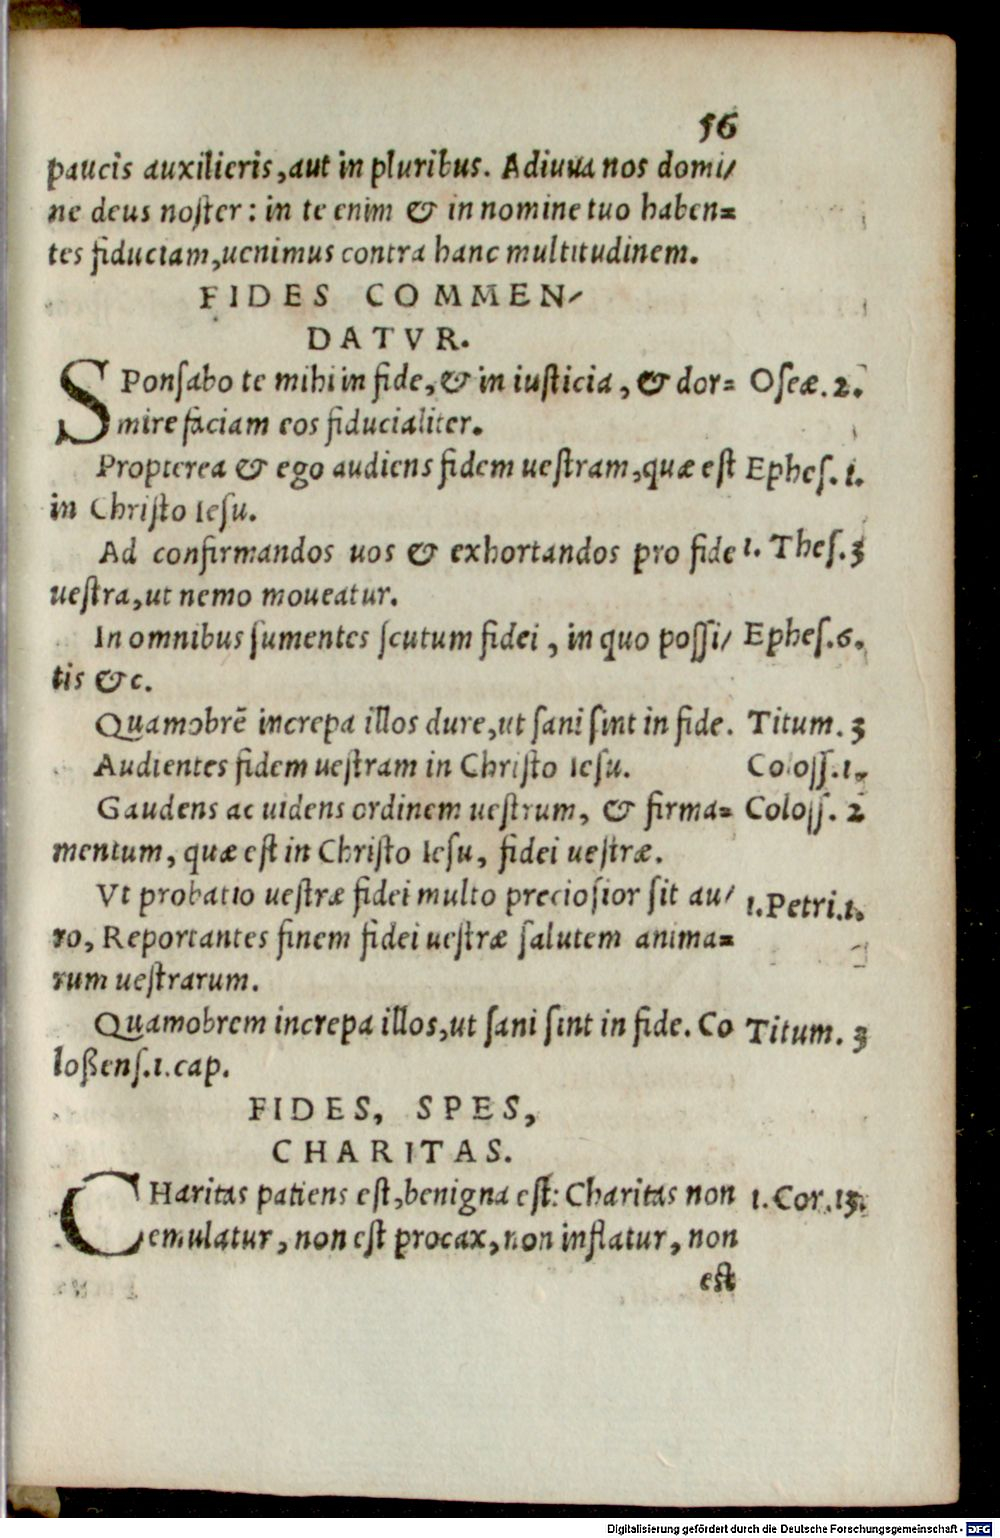 56
paucis auxilieris, aut in pluribus. Adiuua nos domi/
ne deus noster: in te enim & in nomine tuo haben=
tes fiduciam, uenimus contra hanc multitudinem.
FIDES COMMEN/
DATVR.
SPonſabo te mihi in fide, & in iuſticia, & dor= Oſeæ. 2.
mire faciam eos fiducialiter.
Propterea & ego audiens fidem ueſtram, quæ eſt Ephes. 1.
in Chriſto Ieſu.
Ad confirmandos uos & exhortandos pro fide 1. Theſ. 3
ueſtra, ut nemo moueatur.
In omnibus ſumentes ſcutum fidei, in quo poſſi/ Epheſ. 6.
tis &c.
Quamobrē increpa illos dure, ut ſani ſint in fide. Titum. 3
Audientes fidem ueſtram in Chriſto Ieſu. Coloſſ. 1.
Gaudens ac uidens ordinem ueſtrum, & firma= Coloſſ. 2
mentum, quæ eſt in Chriſto Ieſu, fidei ueſtræ.
Vt probatio ueſtræ fidei multo precioſior ſit au/ 1. Petri. 1.
ro, Reportantes finem fidei ueſtræ ſalutem anima=
rum ueſtrarum.
Quamobrem increpa illos, ut ſani ſint in fide. Co Titum. 3
loßenſ. 1. cap.
FIDES, SPES,
CHARITAS.
CHaritas patiens eſt, benigna eſt: Charitas non 1. Cor. 13.
emulatur, non eſt procax, non inflatur, non
eſt
Digitalisierung gefördert durch die Deutsche Forschungsgemeinschaft - DFG